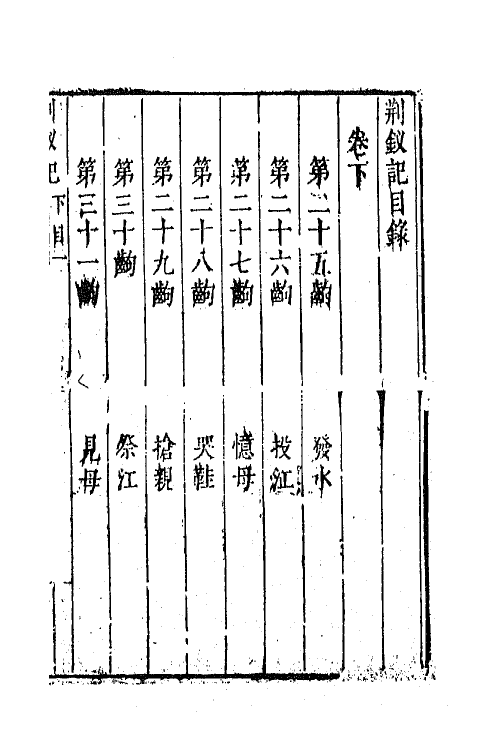 荆釵記目錄
卷下
第二十五齣 發水
第二十六齣 投江
第二十七齣 憶母
第二十八齣 哭鞋
第二十九齣 搶親
第三十齣 祭江
第三十一齣 見母
荆釵記 下目 一